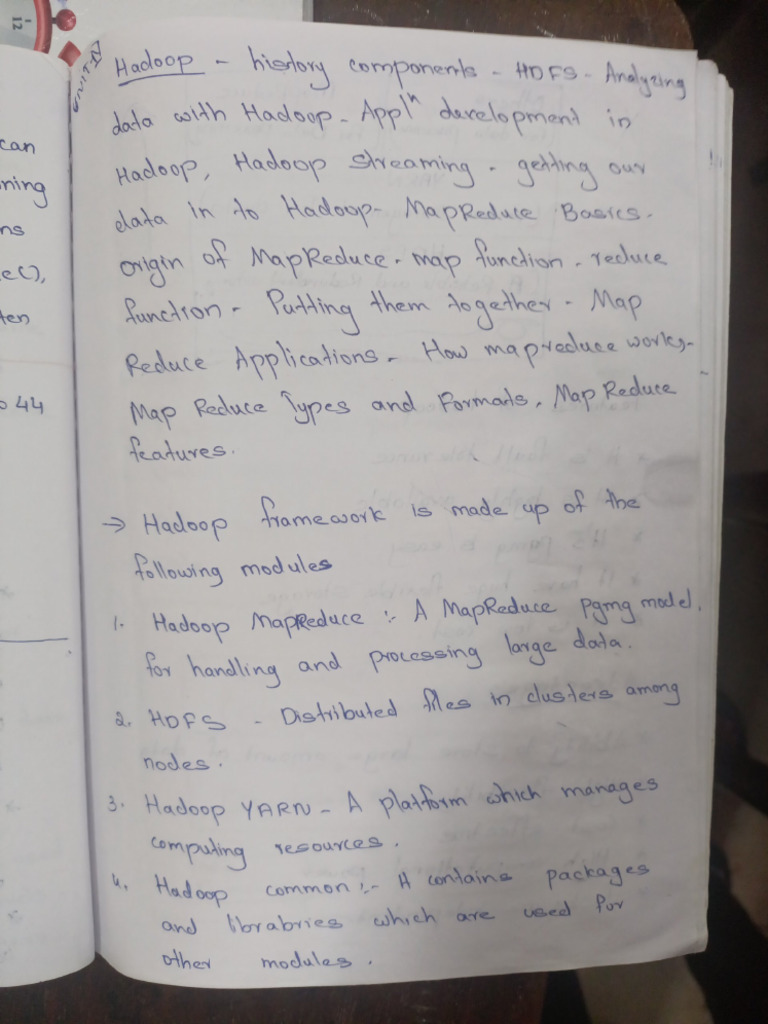 12
can
ning
ns
e(),
ten
44
UNIT-IV
Hadoop - history components - HDFS - Analyzing
data with Hadoop - Applⁿ development in
Hadoop, Hadoop streaming - getting our
data in to Hadoop - MapReduce Basics -
origin of MapReduce - map function - reduce
function - Putting them together - Map
Reduce Applications - How mapreduce works -
Map Reduce Types and Formats, Map Reduce
features.
→ Hadoop framework is made up of the
following modules
1. Hadoop MapReduce :- A MapReduce pgmg model,
for handling and processing large data.
2. HDFS - Distributed files in clusters among
nodes.
3. Hadoop YARN - A platform which manages
computing resources.
4. Hadoop common :- It contains packages
and librabries which are used for
other modules.